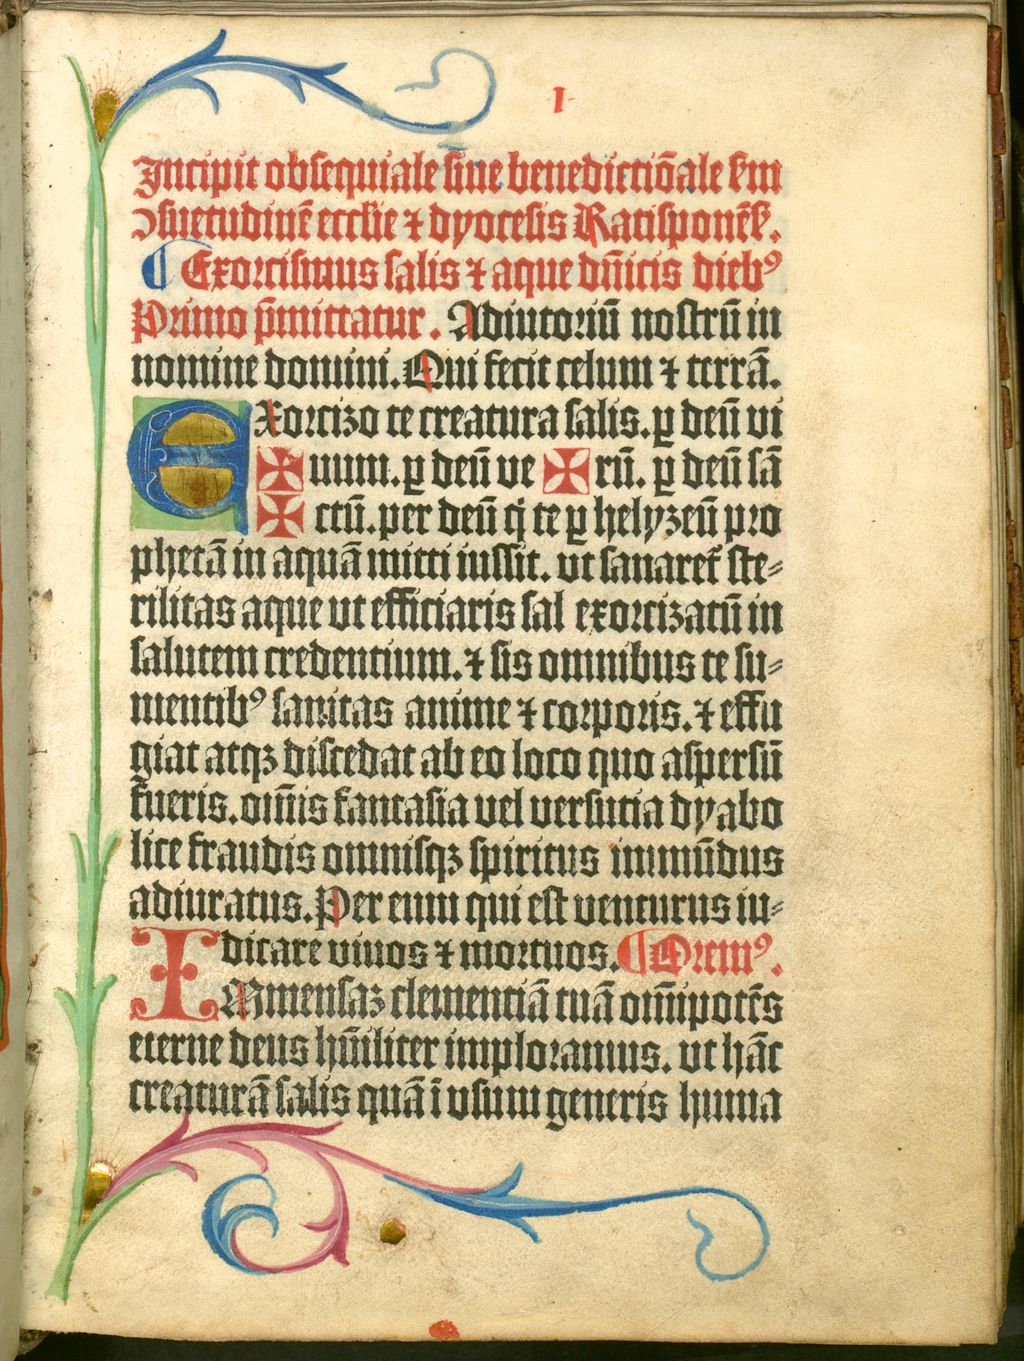 I
Incipit obsequiale siue benedictiōale ẜm
ↄsuetudinē ecclie ⁊ dyocesis Ratisponēẜ.
¶ Exorcismus salis ⁊ aque dn̄icis dieb⁹
Primo p̄mittatur. Adiutoriū nostrū in
nomine domini. Qui fecit celum ⁊ terrā.
Exorcizo te creatura salis. ꝑ deū vi
✠ uum. ꝑ deū ve ✠ rū. ꝑ deū sā
✠ ctū. per deū q̇ te ꝑ helyzeū pro
phetā in aquā mitti iussit. vt sanaret̉ ste⸗
rilitas aque vt efficiaris sal exorcizatū in
salutem credentium. ⁊ sis omnibus te su⸗
mentib⁹ sanitas anime ⁊ corporis. ⁊ effu
giat atqꝫ discedat ab eo loco quo aspersū
fueris. om̄is fantasia vel versutia dyabo
lice fraudis omnisqꝫ spiritus immūdus
adiuratus. Per eum qui est venturus iu⸗
dicare viuos ⁊ mortuos. ¶ Orem⁹.
IMmensaꝫ clementiā tuā om̄ipotēs
eterne deus hūiliter imploramus. vt hāc
creaturā salis quā ī vsum generis huma